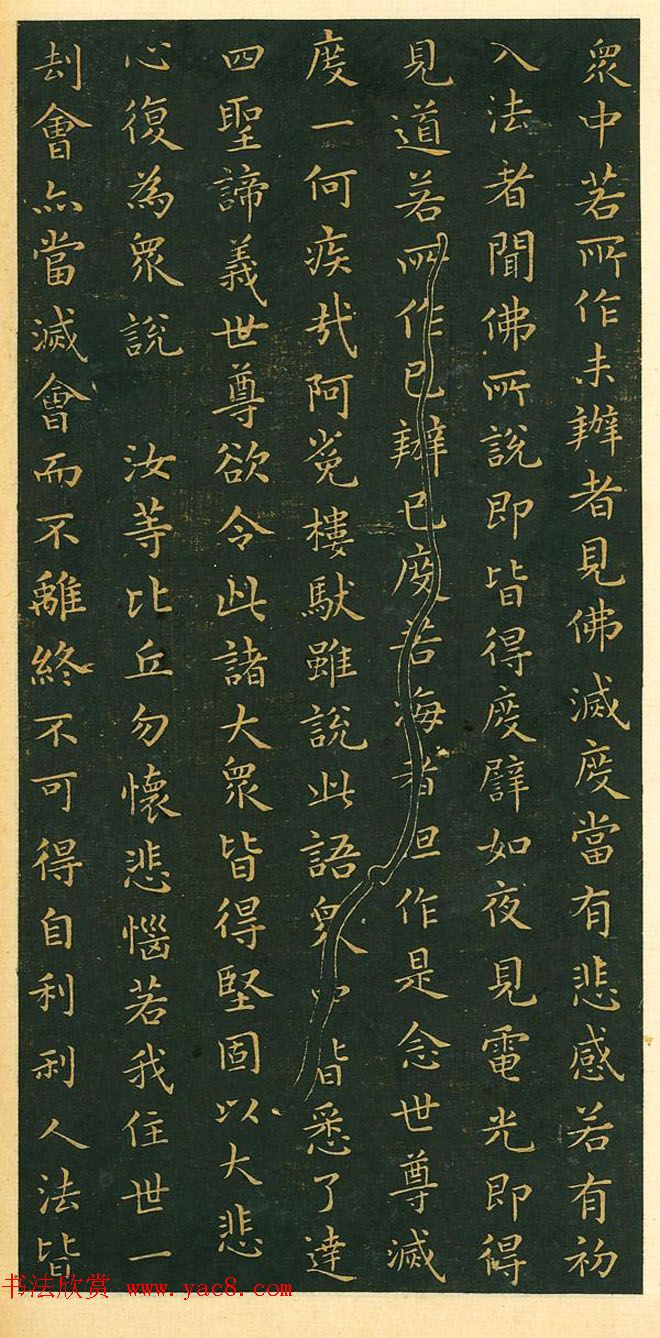 眾中若所作未辦者見佛滅度當有悲感若有初
入法者聞佛所說即皆得度譬如夜見電光即得
見道若所作已辦已度苦海者但作是念世尊滅
度一何疾哉阿㝹樓馱雖說此語眾中皆悉了達
四聖諦義世尊欲令此諸大眾皆得堅固以大悲
心復為眾說　汝等比丘勿懷悲惱若我住世一
劫會亦當滅會而不離終不可得自利利人法皆
书法欣赏 www.yac8.com